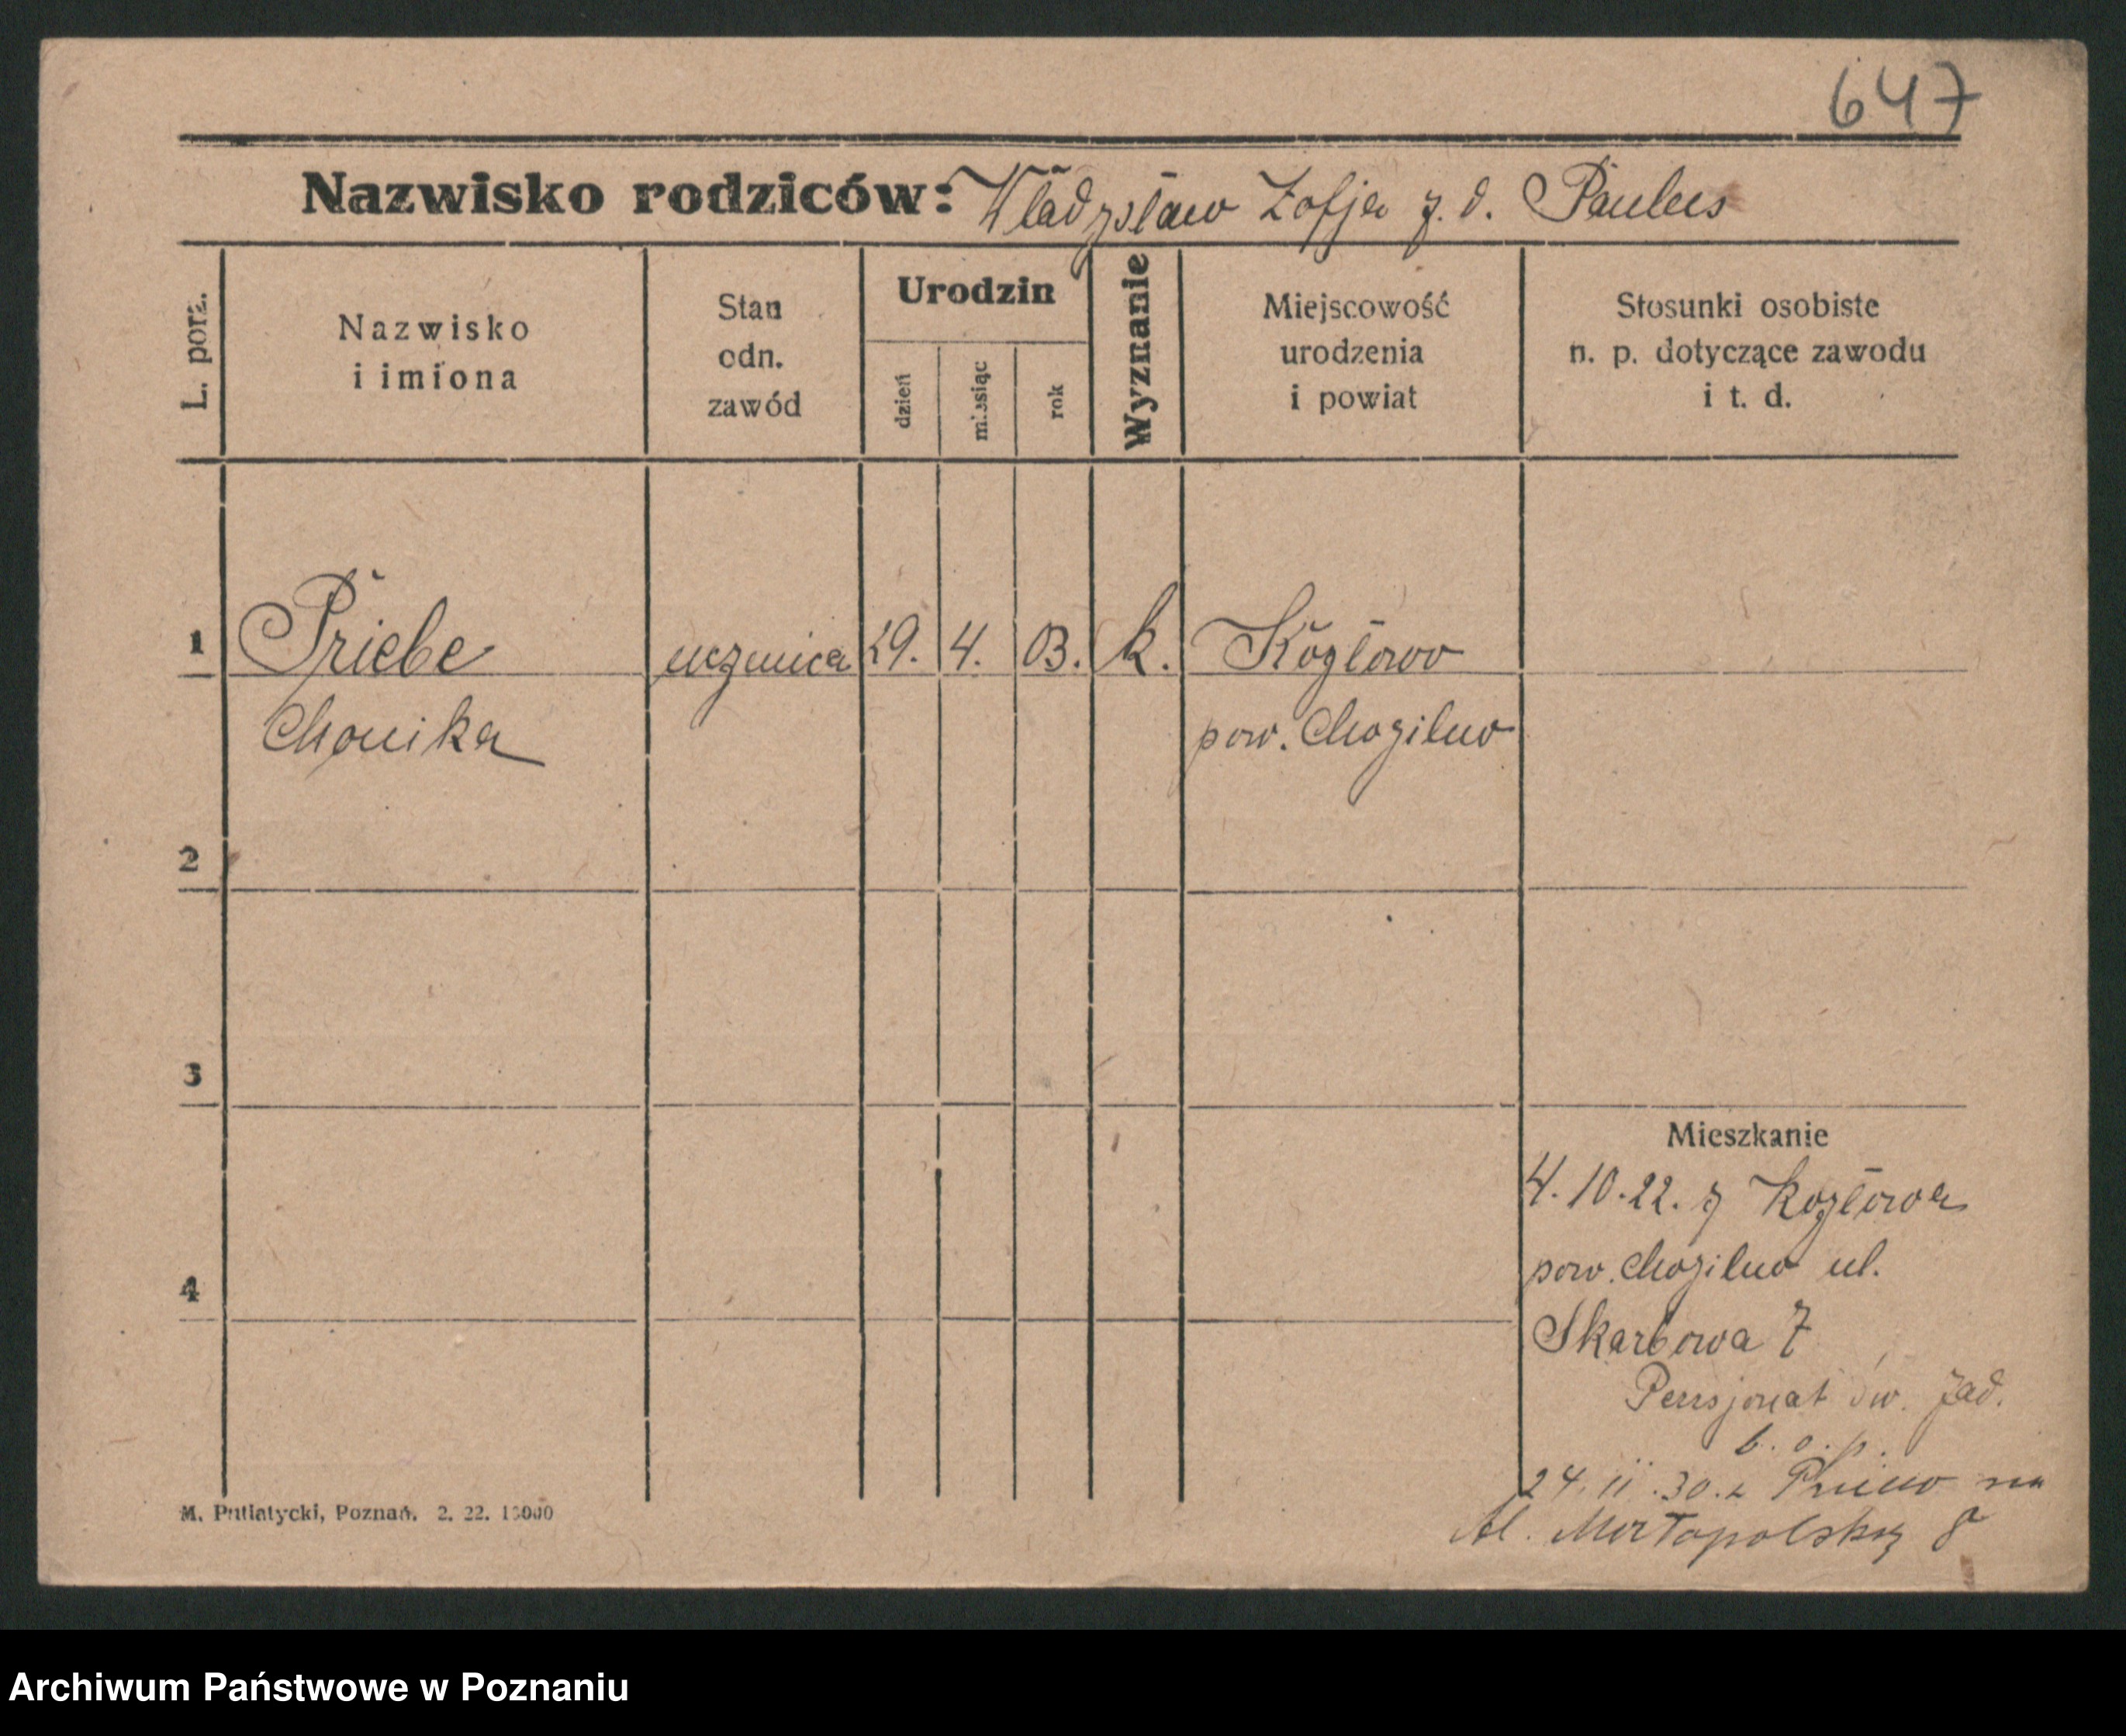 647
Nazwisko rodziców: Władysław Zofja z. d. Paulus
L. porz.
Nazwisko
i imiona
Stan
odn.
zawód
Urodzin
dzień
miesiąc
rok
Wyznanie
Miejscowość
urodzenia
i powiat
Stosunki osobiste
n. p. dotyczące zawodu
i t. d.
1 Priebe uczenica 29. 4. 03. k. Kozłowo
Monika pow. Mogilno
2
3
Mieszkanie
4.10.22. z Kozłowa
pow. Mogilno ul.
4
Skarbowa 7
Pensjonat św.
b. o. p.
24.11.30. z na
Al. 8
M. Putiatycki, Poznań. 2. 22. 15000
Archiwum Państwowe w Poznaniu